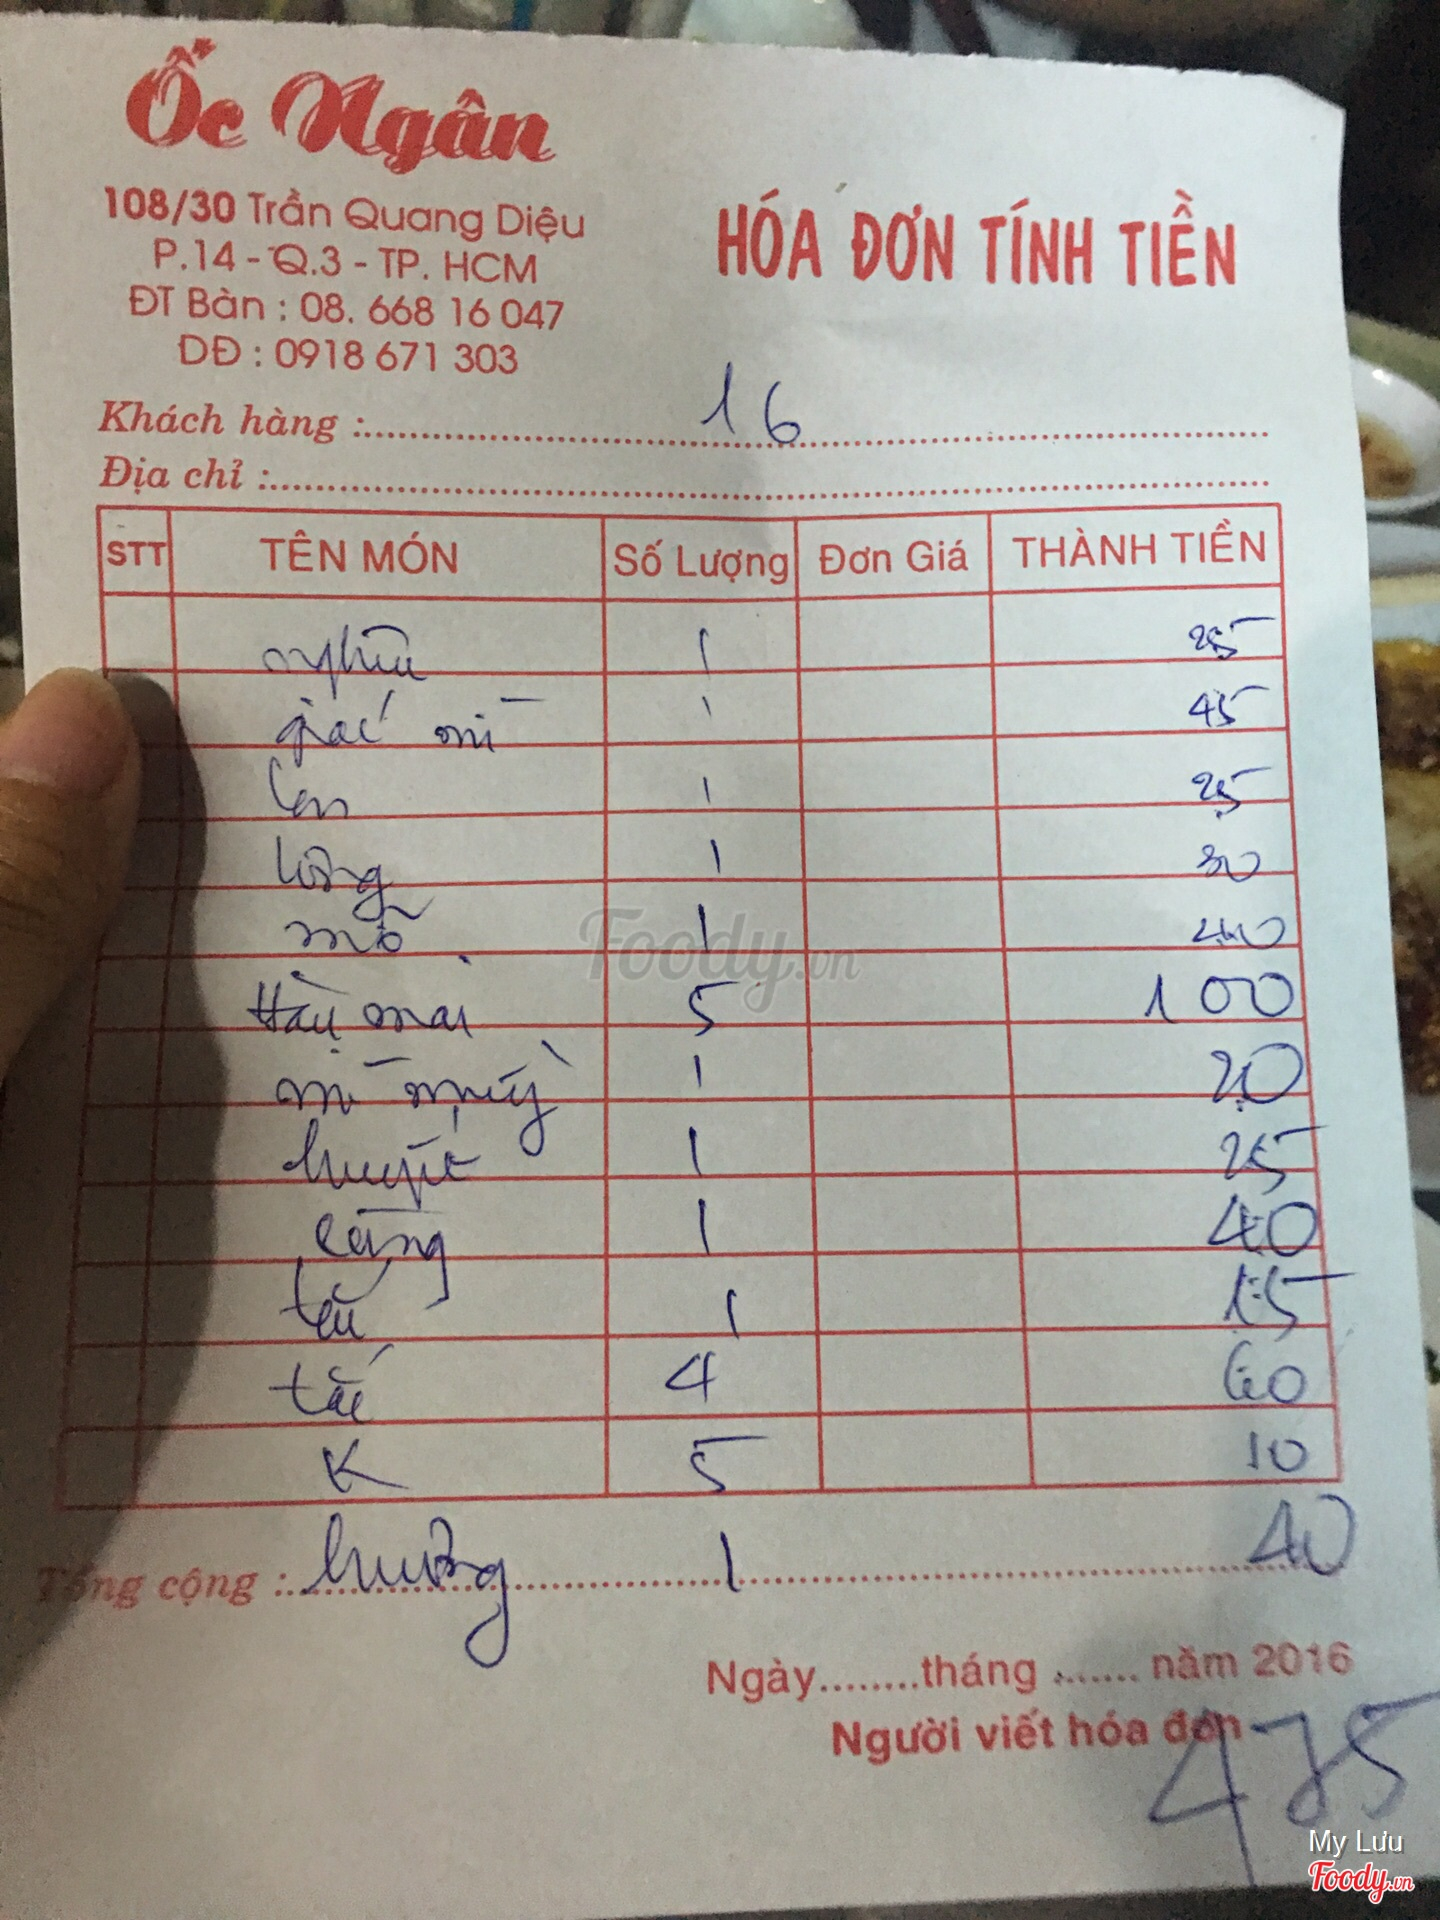 Ốc Ngân
108/30 Trần Quang Diệu
P.14 - Q.3 - TP. HCM
ĐT Bàn : 08. 668 16 047
DĐ : 0918 671 303
HÓA ĐƠN TÍNH TIỀN
Khách hàng : 16
Địa chỉ :
STT TÊN MÓN Số Lượng Đơn Giá THÀNH TIỀN
nghêu 1 25
giác mì 1 45
len 1 25
lông 1 30
mỡ 1 40
Hàu mai 5 100
mì 1 20
huyết 1 25
càng 1 40
1 15
tắc 4 60
K 5 10
hương 1 40
Tổng cộng :
Ngày........tháng ....... năm 2016
Người viết hóa đơn
475
Foody.vn
My Lưu
Foody.vn